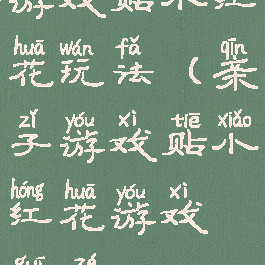 游戏贴小红
huā wán fǎ qīn
花玩法(亲
zǐ yóu xì tiē xiǎo
子游戏贴小
hóng huā yóu xì
红花游戏
guī zé